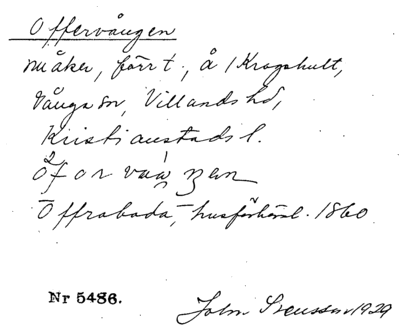 Offervången
nu åker, förr t., å 1 Krogshult,
Vånga sn, Villands hd,
Kristianstads l.
Offrabada, husförhörsl. 1860
Nr 5486.
John Svensson 1929